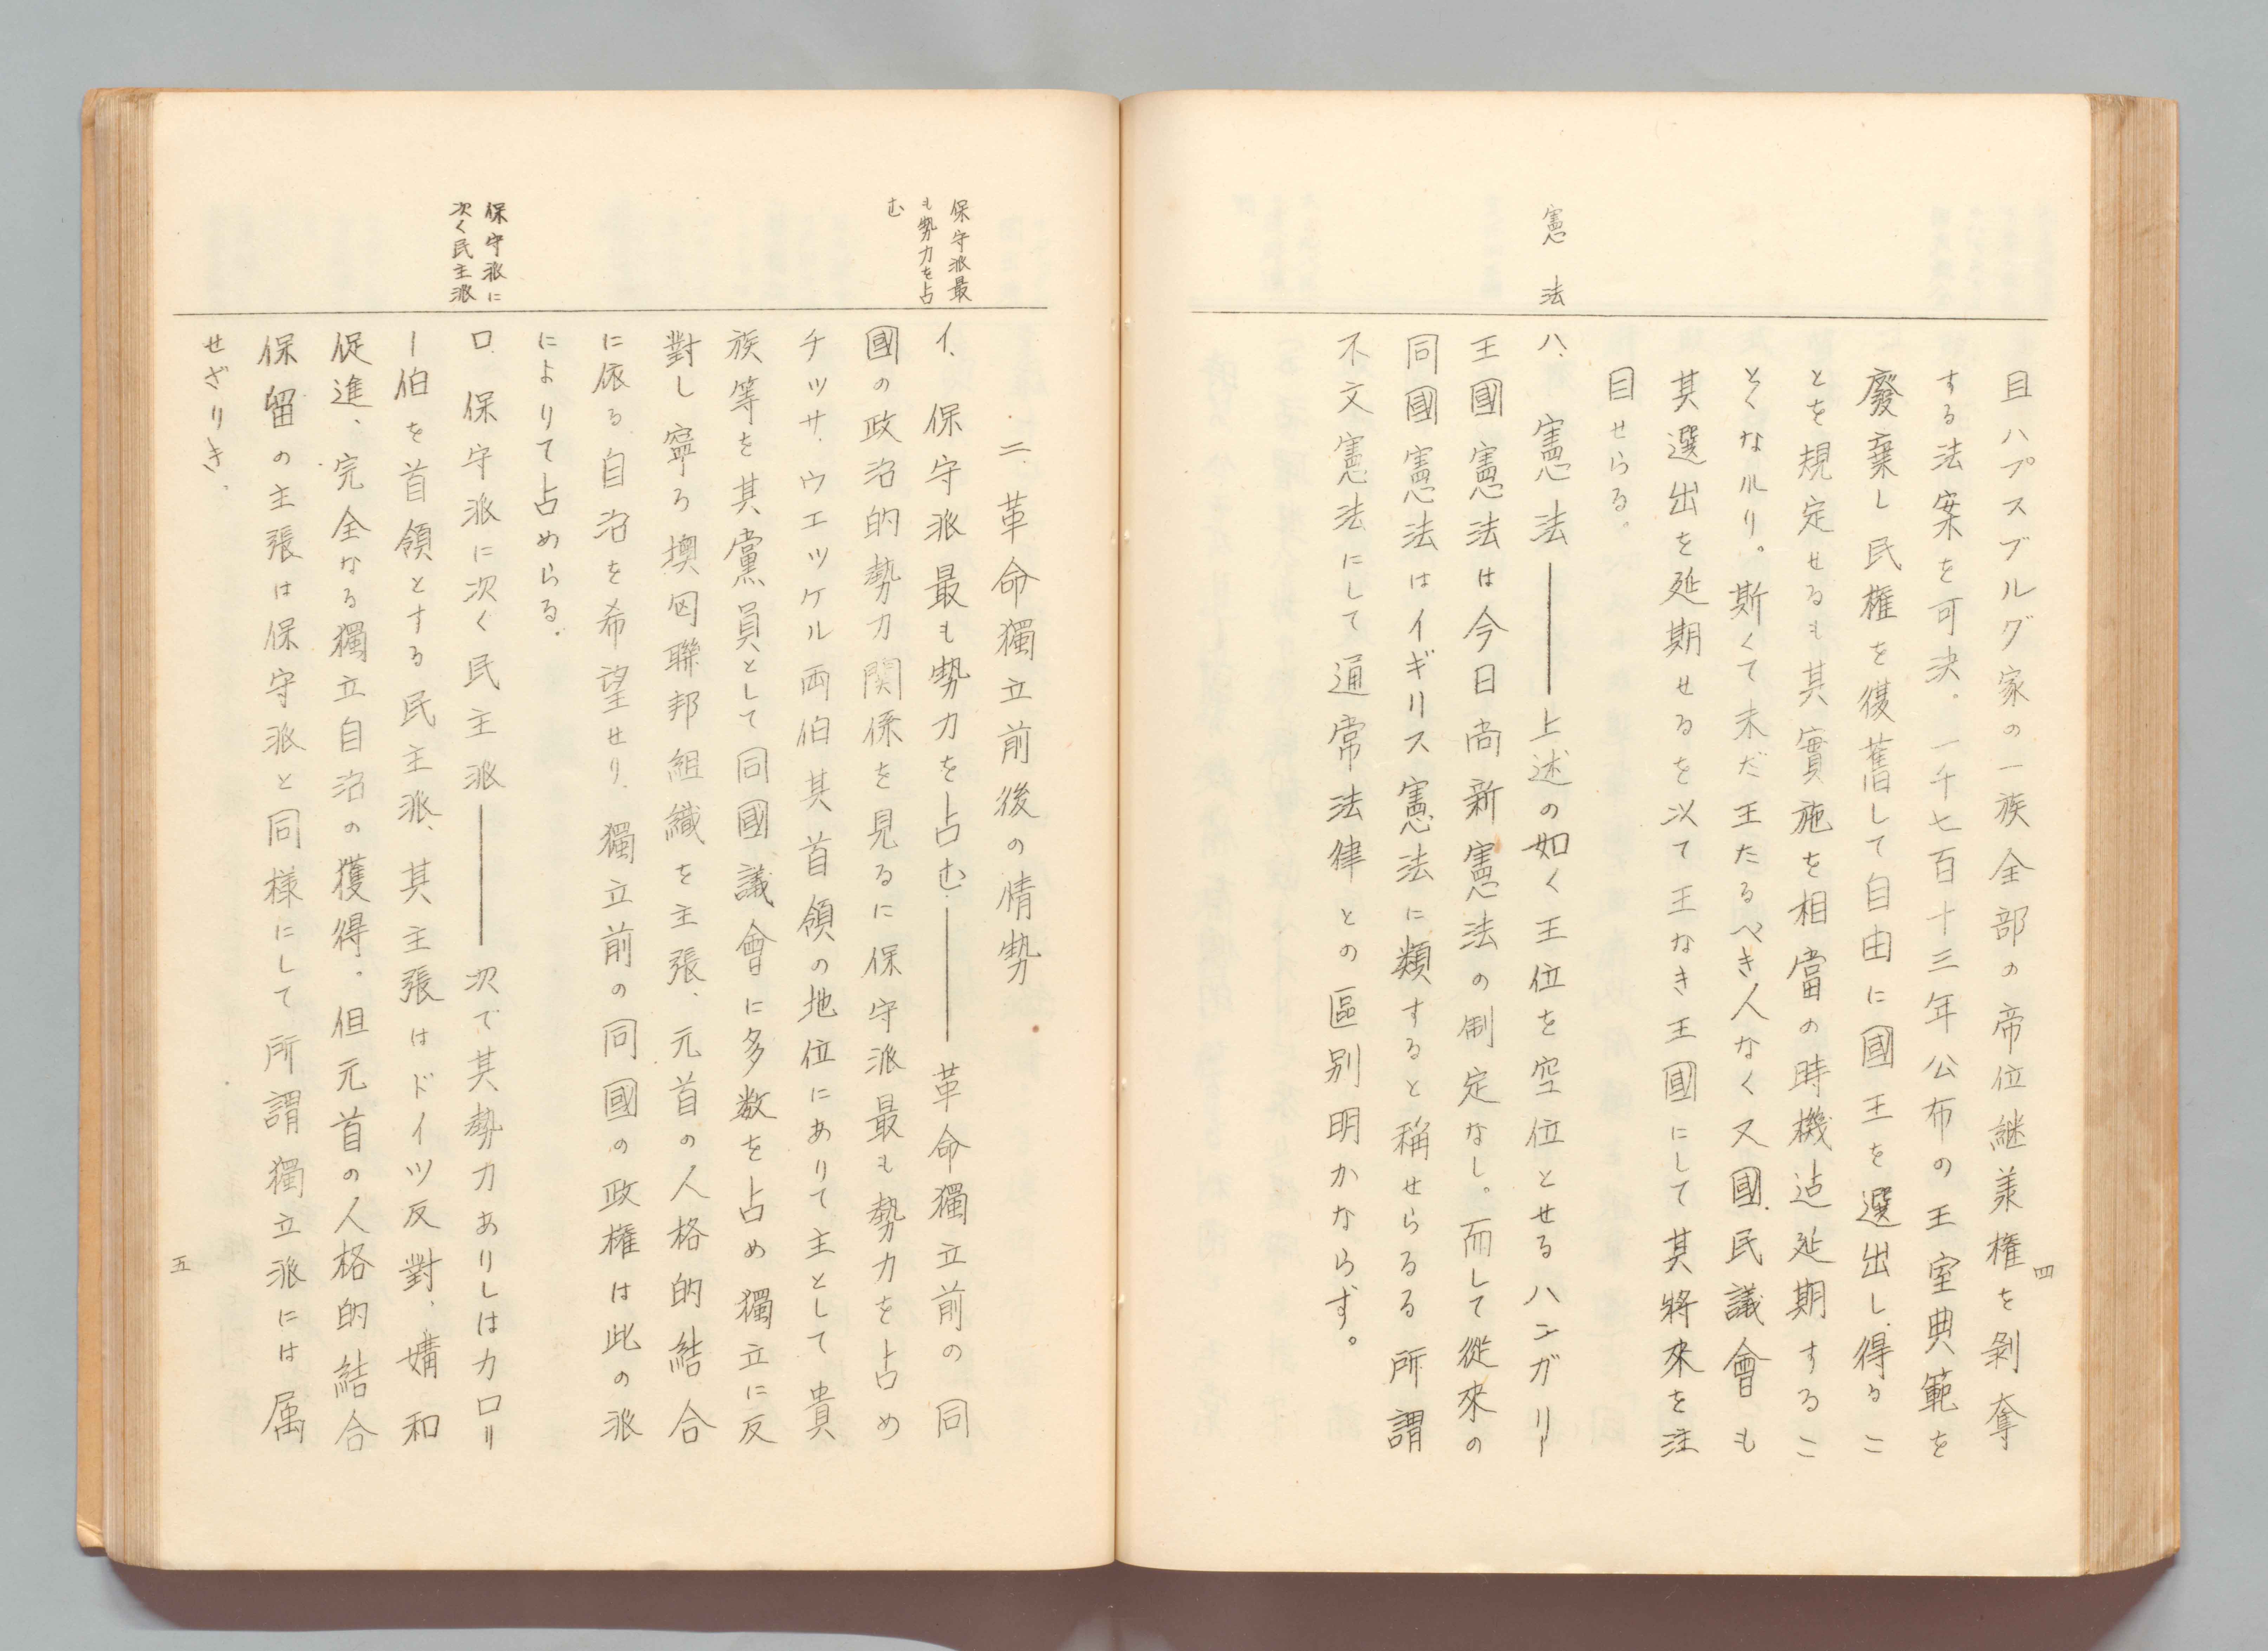 四
且ハプスブルグ家の一族全部の帝位継羕権を剝奪
する法案を可決。一千七百十三年公布の王室典範を
廢棄し民権を復舊して自由に國王を選出し得るこ
とを規定せるも其實施を相當の時機迠延期するこ
とゝなルり。斯くて未だ王たるべき人なく又國民議會も
其選出を延期せるを以て王なき王國にして其將來を注
目せらる。
憲法
ハ、憲法――上述の如く王位を空位とせるハンガリー
王國憲法は今日尚新憲法の制定なし。而して從來の
同國憲法はイギリス憲法に類すると稱せらるる所謂
不文憲法にして通常法律との區別明かならず。
二、革命獨立前後の情勢
保守派最
も勢力を占
む
イ、保守派最も勢力を占む――革命獨立前の同
國の政治的勢力関係を見るに保守派最も勢力を占め
チッサ、ウエッケル両伯其首領の地位にありて主として貴
族等を其黨員として同國議會に多数を占め獨立に反
對し寧ろ墺匈聯邦組織を主張、元首の人格的結合
に依る自治を希望せり、獨立前の同國の政権は此の派
によりて占めらる。
保守派に
次く民主派
ロ、保守派に次く民主派――次で其勢力ありしはカロリ
ー伯を首領とする民主派、其主張はドイツ反對、媾和
促進、完全なる獨立自治の獲得。但元首の人格的結合
保留の主張は保守派と同様にして所謂獨立派には属
せざりき。
五